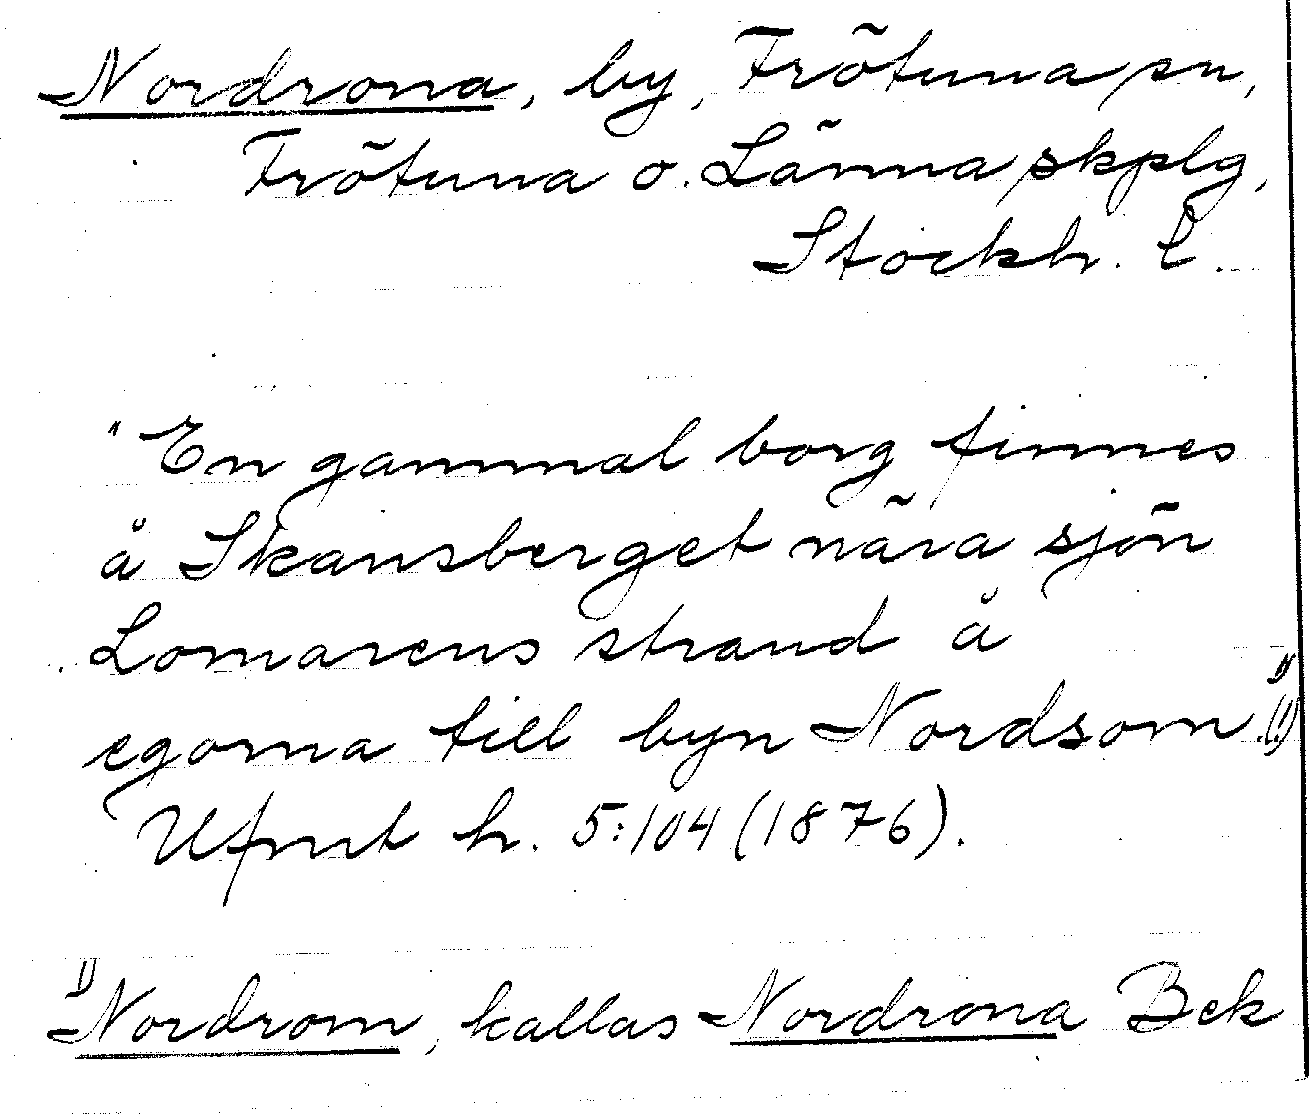 Nordrona, by, Frötuna sn,
Frötuna o. Länna skplg,
Stockh. l.
"En gammal borg finnes
å Skansberget nära sjön
Lomarens strand å
egorna till byn Nordsom.(!) 1)
Ufmt h. 5:104 (1876).
1) Nordrom, kallas Nordrona Bek